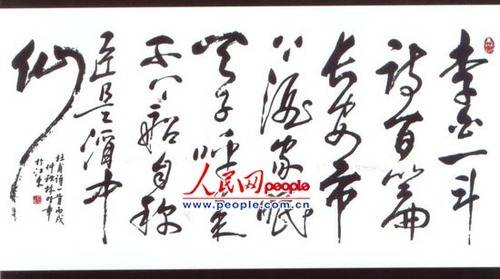 李白一斗
诗百篇
长安市
上酒家眠
天子呼来
不上船自称
臣是酒中
仙
杜甫诗一首丙戌
仲秋
人民网people
www.people.com.cn